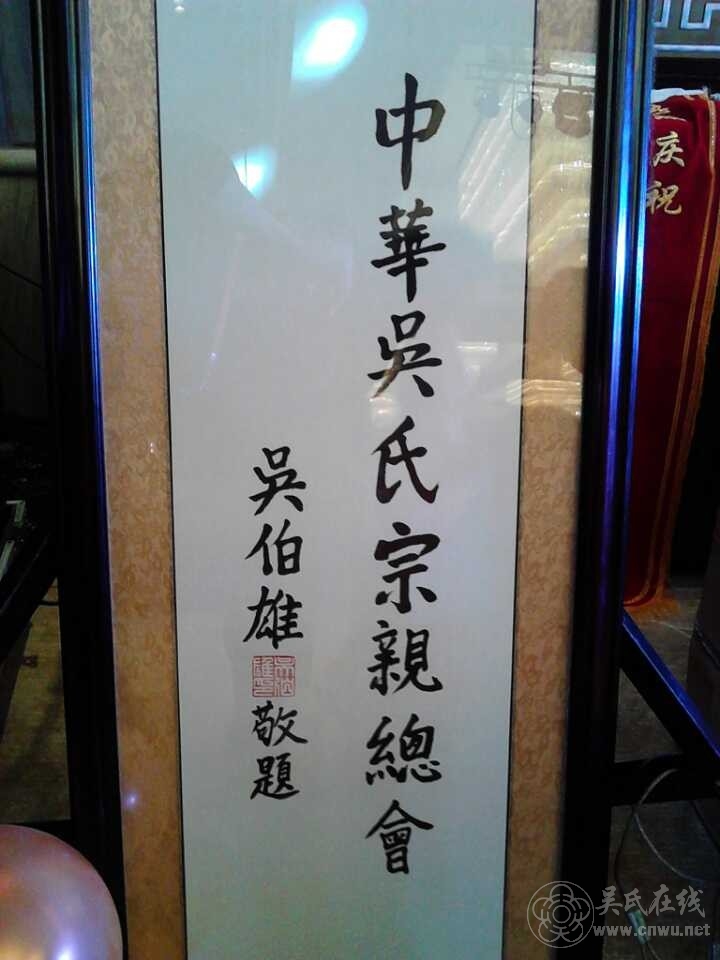 中華吳氏宗親總會
吳伯雄
敬題
庆祝
吴氏在线
www.cnwu.net